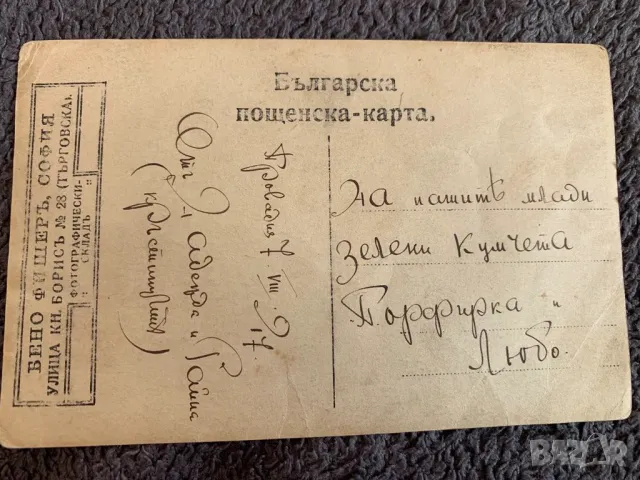 Българска
пощенска-карта.
БЕНО ФИШЕРЪ, СОФИЯ
УЛИЦА КН. БОРИСЪ № 28 (ТЪРГОВСКА).
ФОТОГРАФИЧЕСКИ
СКЛАДЪ
Провадия 7 VIII 917.
Отъ Надежда и Райна
На нашитѣ млади
зелени Кумчета
Порфирка и
Любо.
BAZAR